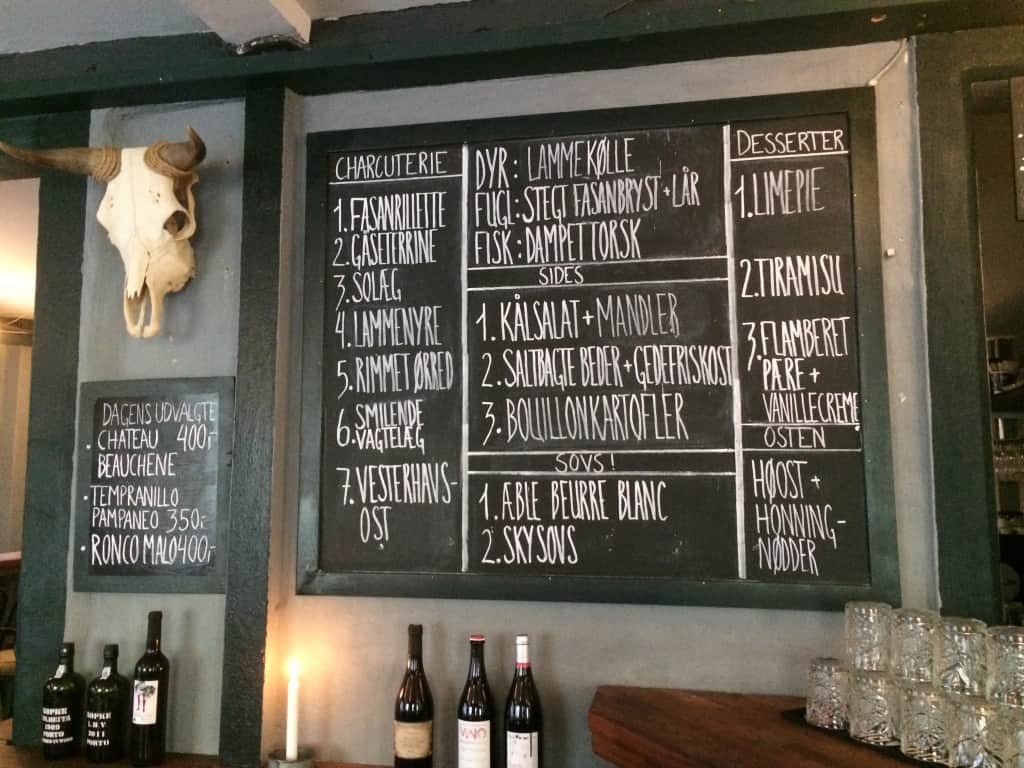 DAGENS UDVALGTE
CHATEAU 400,-
BEAUCHENE
TEMPRANILLO
PAMPANEO 350,-
RONCO MALO 400,-
CHARCUTERIE
1. FASANRILLETTE
2. GÅSETERRINE
3. SOLÆG
4. LAMMENYRE
5. RIMMET ØRRED
6. SMILENDE
VAGTELÆG
7. VESTERHAVS-
OST
DYR: LAMMEKØLLE
FUGL: STEGT FASANBRYST + LÅR
FISK: DAMPET TORSK
SIDES
1. KÅLSALAT + MANDLER
2. SALTBAGTE BEDER + GEDEFRISKOST
3. BOUILLONKARTOFLER
SOVS!
1. ÆBLE BEURRE BLANC
2. SKYSOVS
DESSERTER
1. LIMEPIE
2. TIRAMISU
3. FLAMBERET
PÆRE +
VANILLECREME
OSTEN
HØOST +
HONNING-
NØDDER
KOPKE
1989
PORTO
KOPKE
L.B.V
2011
PORTO
VINO